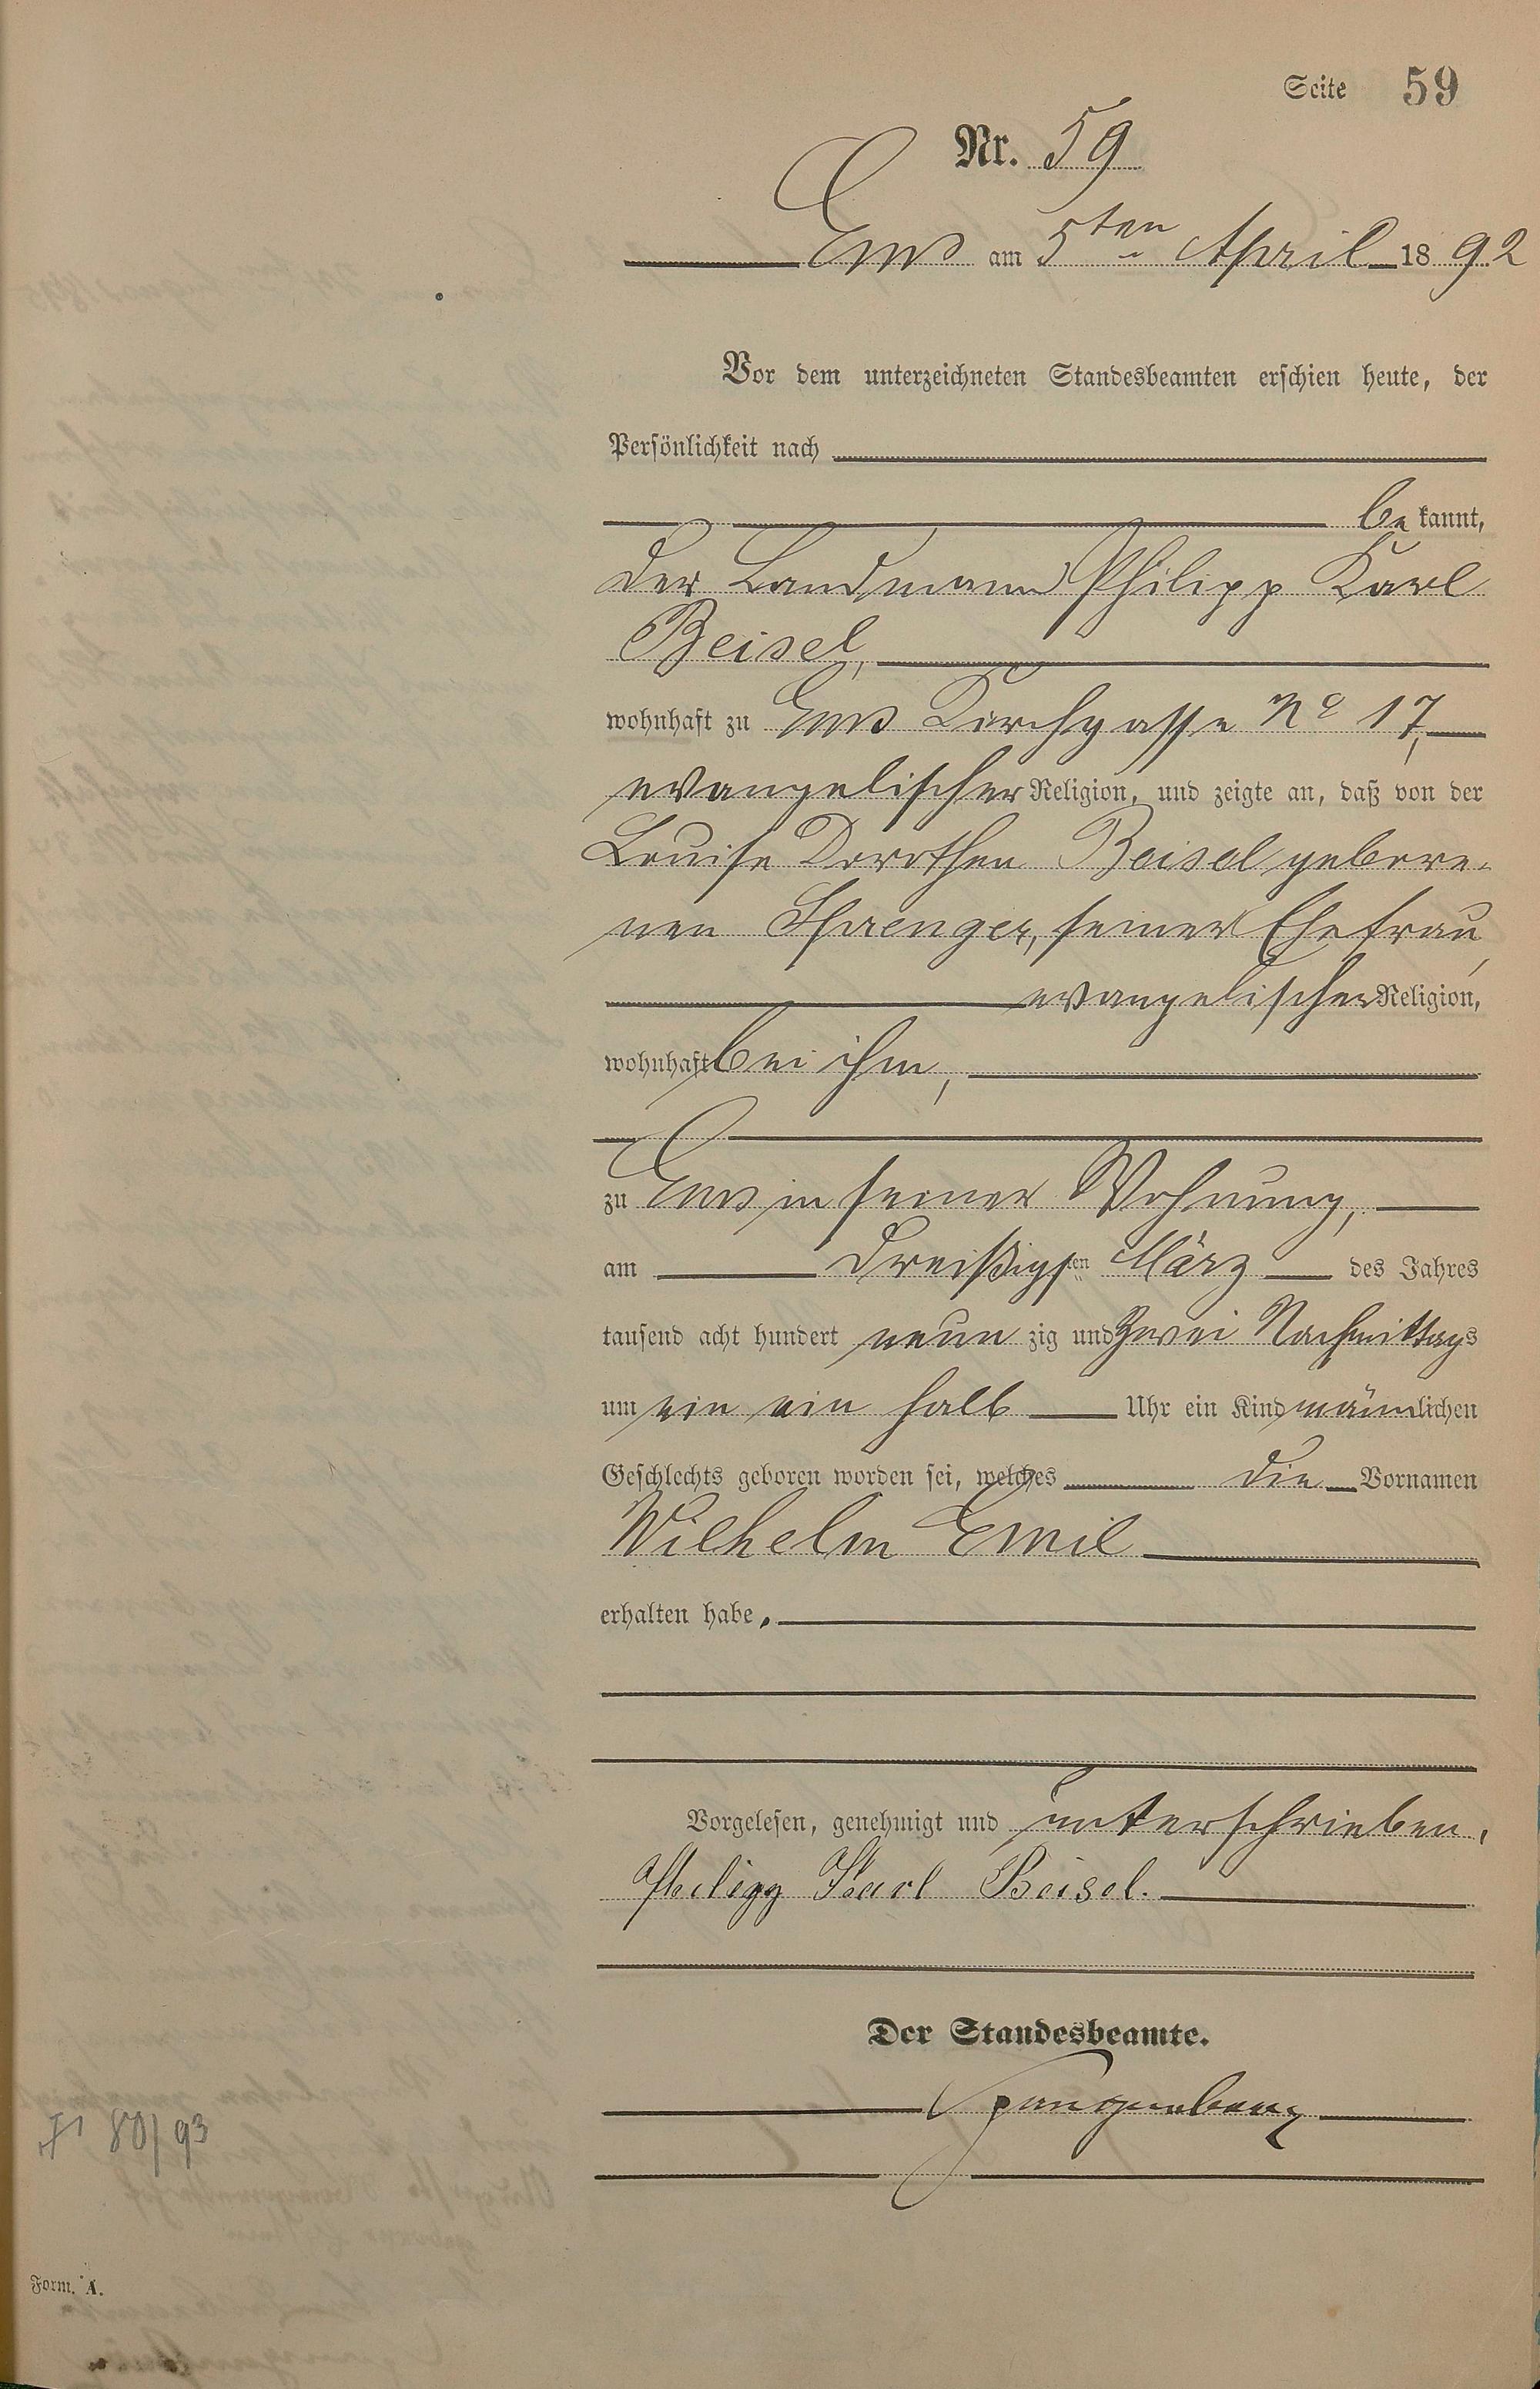 Seite 59
Nr. 59
Ems am 5ten April 1892
Vor dem unterzeichneten Standesbeamten erschien heute, der
Persönlichkeit nach
be kannt,
der Landmann Philipp Karl
Beisel,
wohnhaft zu Ems Kirchgasse No 17,
evangelischer Religion, und zeigte an, daß von der
Louise Dorothea Beisel gebore-
nen Sprenger, seiner Ehefrau,
evangelischer Religion,
wohnhaft bei ihm,
zu Ems in seiner Wohnung,
am dreißigsten März des Jahres
tausend acht hundert neun zig und zwei Nachmittags
um ein ein halb Uhr ein Kind männlichen
Geschlechts geboren worden sei, welches die Vornamen
Wilhelm Emil
erhalten habe.
Vorgelesen, genehmigt und unterschrieben.
Philipp Karl Beisel.
Der Standesbeamte.
Spangenberg
80/93
Form. A.